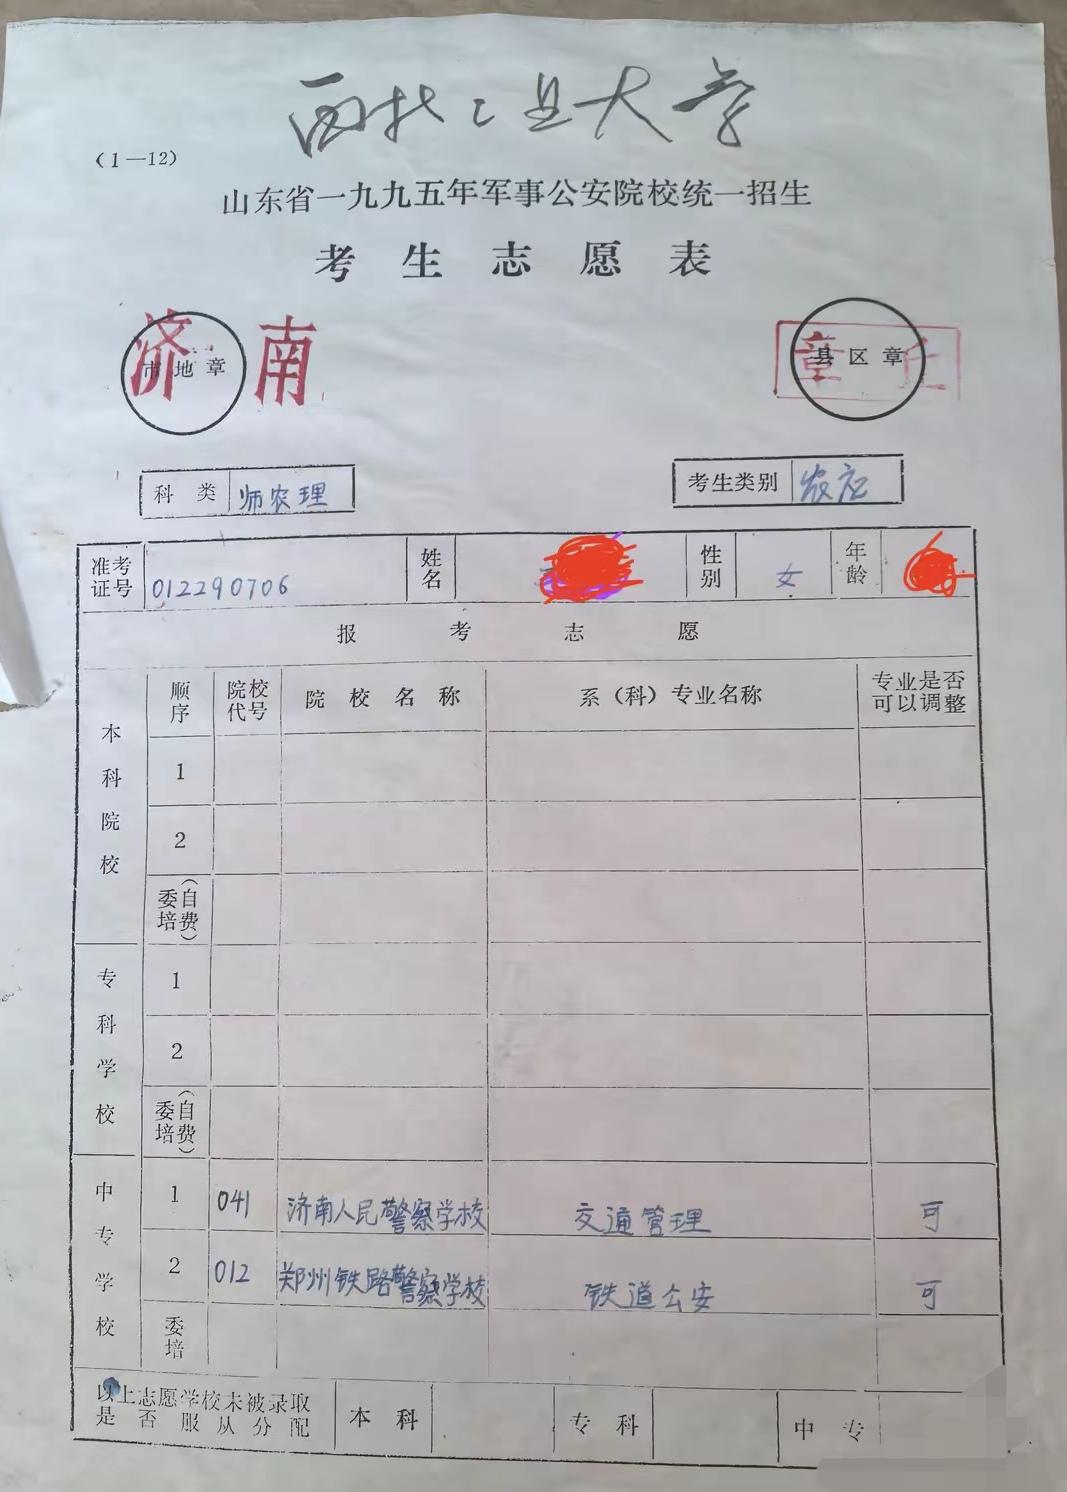 西北工业大学
（1—12）
山东省一九九五年军事公安院校统一招生
考生志愿表
济南
市地章
章丘
县区章
科类 师农理
考生类别 农应
准考证号 012290706 姓名 性别 女 年龄
报考志愿
顺序 院校代号 院校名称 系（科）专业名称 专业是否可以调整
本科院校
1
2
委培（自费）
专科学校
1
2
委培（自费）
中专学校
1 041 济南人民警察学校 交通管理 可
2 012 郑州铁路警察学校 铁道公安 可
委培
以上志愿学校未被录取是否服从分配 本科 专科 中专